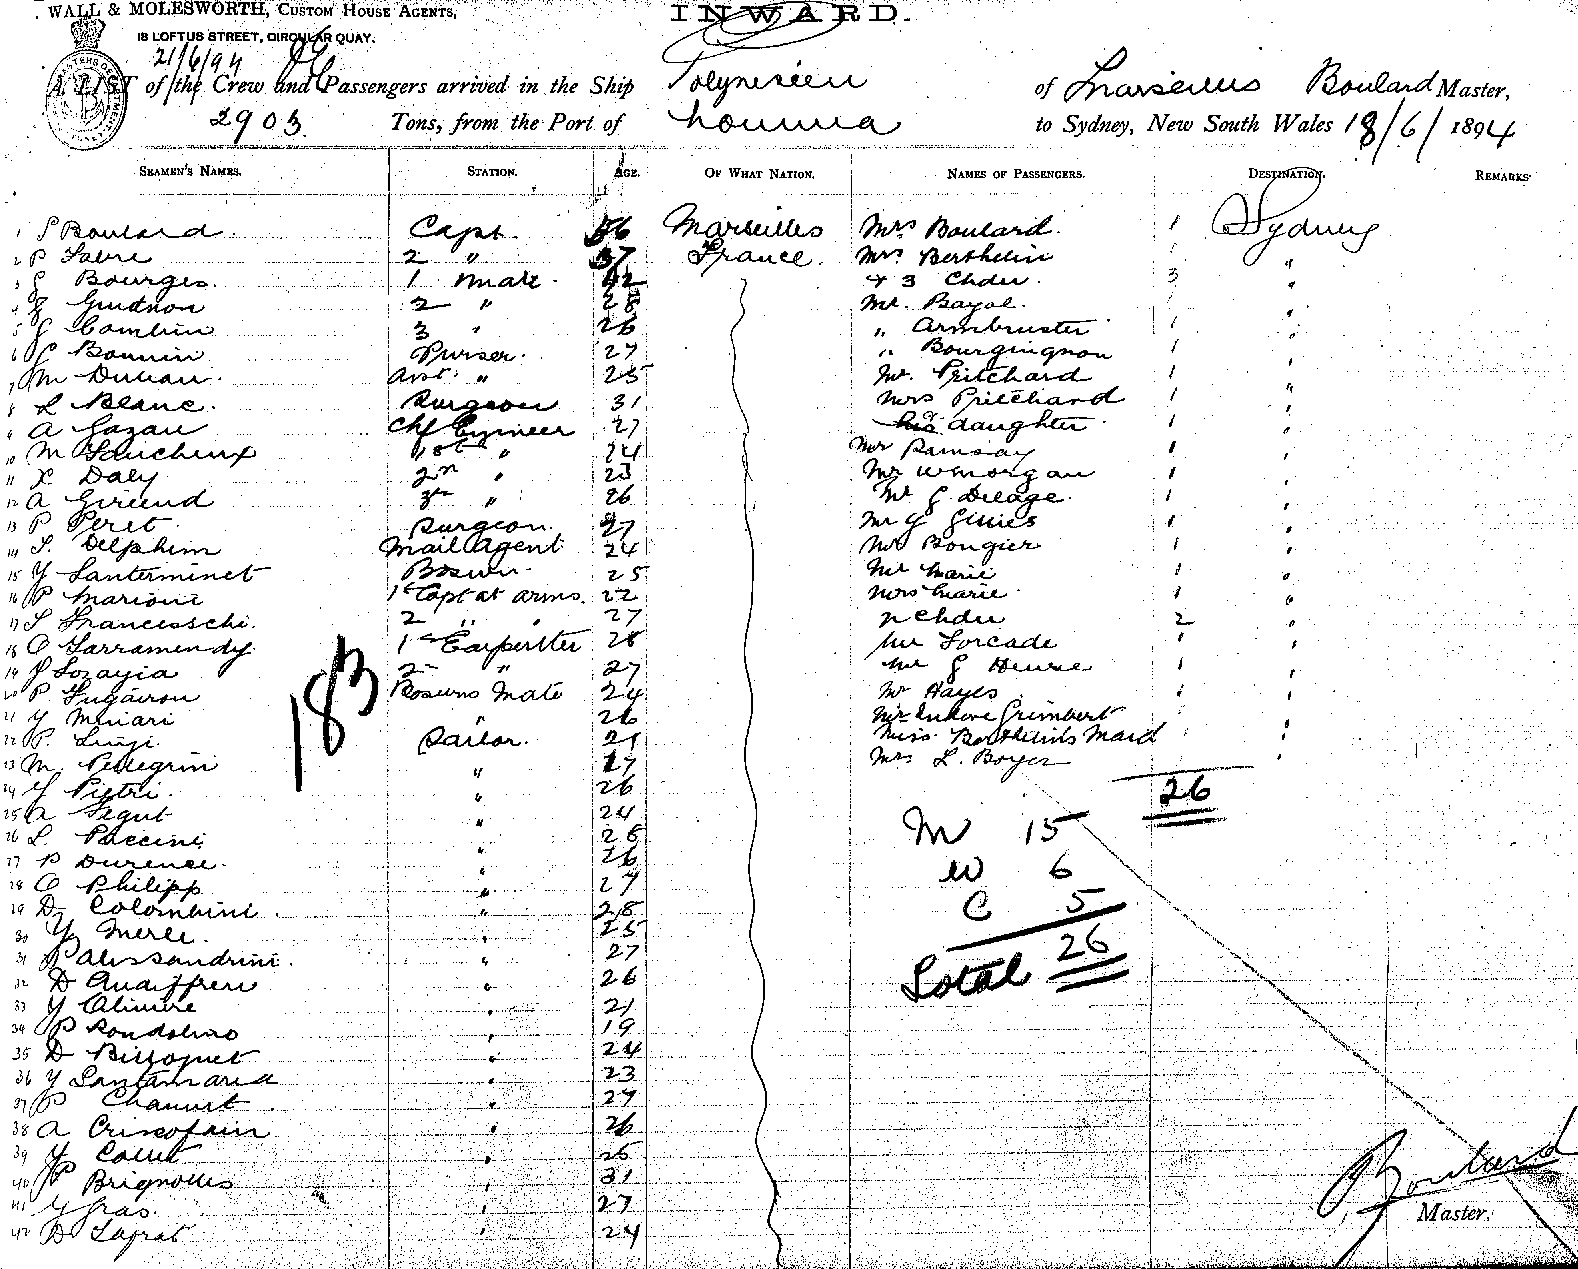 WALL & MOLESWORTH, CUSTOM HOUSE AGENTS,
INWARD.
18 LOFTUS STREET, CIRCULAR QUAY.
21/6/94
A LIST of the Crew and Passengers arrived in the Ship Polynesien of Marseilles Boulard Master,
2903 Tons, from the Port of Noumea to Sydney, New South Wales 18/6/1894
SEAMEN'S NAMES. STATION. AGE. OF WHAT NATION. NAMES OF PASSENGERS. DESTINATION. REMARKS
1 Boulard Capt. 56 Marseilles Mrs Boulard. 1 Sydney
2 P Fabre 2 " 37 France. Mrs Berthelin 1 "
3 Bourges. 1 Mate. 42 + 3 Chden. 3 "
4 2 " 28 Mr. Bayol. 1 "
5 Combin 3 " 26 " Armbruster 1 "
6 Bonnin Purser. 27 " Bourgingnon 1 "
7 M Asst. " 25 Mr. Pritchard 1 "
8 L Blanc. Surgeon 31 Mrs Pritchard 1 "
9 A Gazau Chf Engineer 27 daughter 1 "
10 M 1st " 24 Mr Ramsay 1 "
11 X Daly 2n " 23 Mr W Morgan 1 "
12 A 3rd " 26 Mr G Delage. 1 "
13 P Peret. Surgeon. 27 Mr G Gillies 1 "
14 Delphim Mail Agent 24 Mr Bougier 1 "
15 Y Santerminet Bosun. 25 Mr Marie 1 "
16 P Marioni 1st Capt at arms. 22 Mrs Marie 1 "
17 Francesschi. 2 " " 27 2 Chden 2 "
18 O Larramendy. 1st Carpenter 28 Mr Forcade 1 "
19 Lozayia 2 " 27 Mr G 1 "
20 P Fugairon Bosuns Mate 24 Mr Hayes 1 "
21 Y Minari " 26 Grimbert "
22 P. Luigi. Sailor. 21 Miss. Berthelins Maid 1 "
23 M. Pellegrin " 27 Mrs L. Boyer "
24 Y Pietri. " 26 26
25 A Segut " 24
26 L. Paccini " 28 M 15
27 P Durence. " 26
28 O Philipp " 27 W 6
29 D Colombini " 28 C 5
30 Y Merle. " 25
31 P Alessandrini. " 27 Total 26
32 D " 26
33 Y " 21
34 P Rondolino " 19
35 D " 24
36 Y Santamaria " 23
37 P " 27
38 A " 26
39 Y " 25
40 P Brignolles " 31
41 Y Gras. " 27
42 D " 24
183
Boulard
Master.